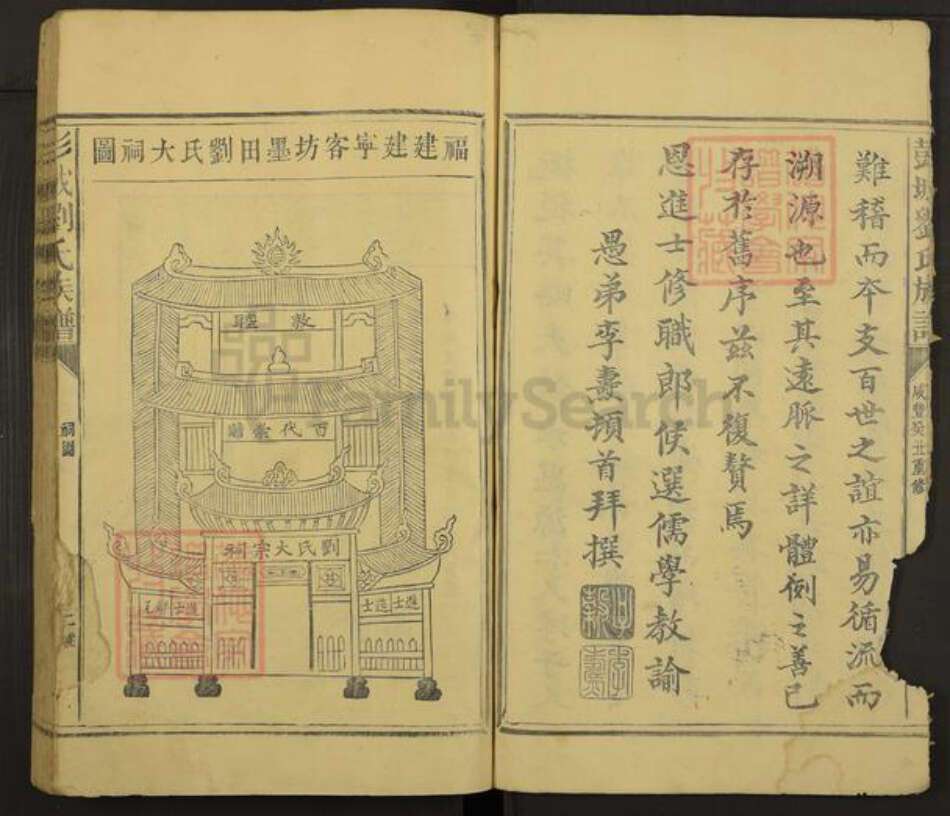 彭城劉氏族譜
咸豐癸丑重修
難稽而本支百世之誼亦易循流而
溯源也至其遠脈之詳體例之善已
存於舊序茲不復贅焉
恩進士修職郎候選儒學教諭
愚弟李燾頓首拜撰
李燾
福建建寧客坊墨田劉氏大祠圖
敦睦
百代
劉氏大宗祠
進士
進士
彭城劉氏族譜
祠圖
FamilySearch